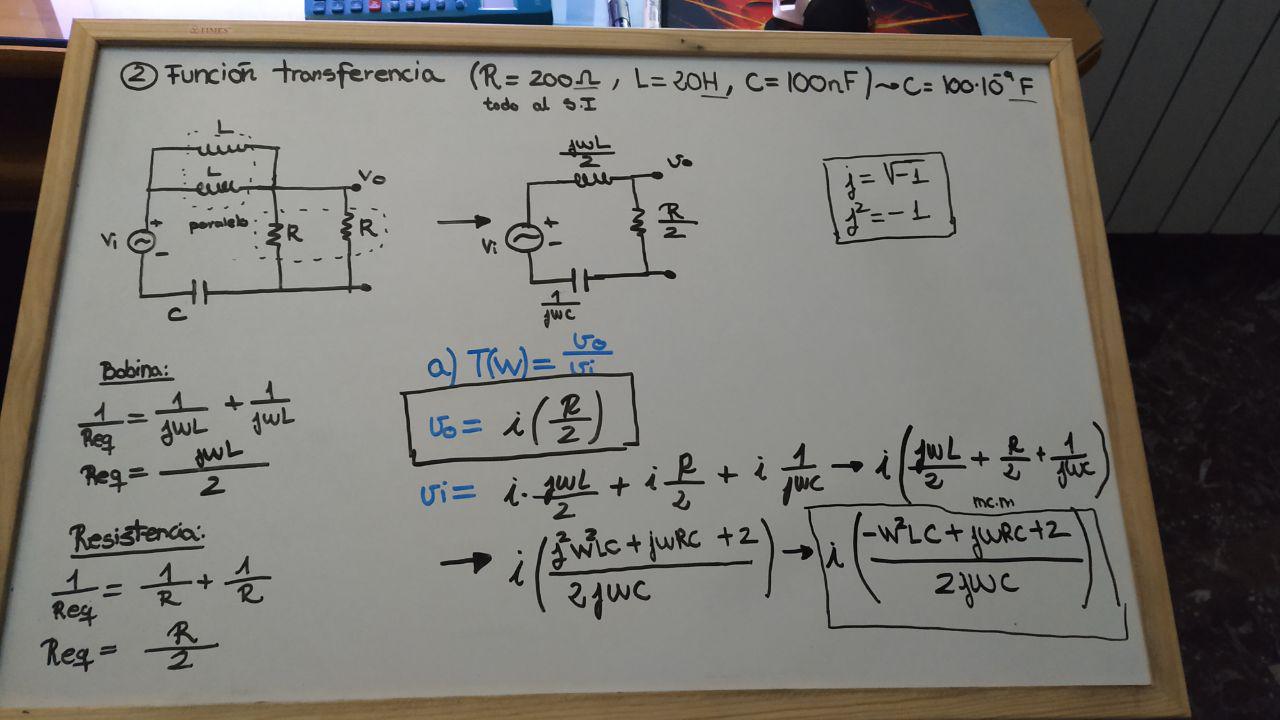 TIMES
② Función transferencia (R = 200Ω, L = 20H, C = 100nF) ~ C = 100·10⁻⁹ F
todo al S.I
L
L
paralelo
Vi
+
-
R
R
Vo
C
jwL/2
Vo
Vi
+
-
R/2
1/jwc
j = √-1
j² = -1
Bobina:
1/Req = 1/jwL + 1/jwL
Req = jwL/2
Resistencia:
1/Req = 1/R + 1/R
Req = R/2
a) T(w) = vo/vi
vo = i(R/2)
vi = i·jwL/2 + i R/2 + i 1/jwc → i(jwL/2 + R/2 + 1/jwc)
m.c.m
→ i((j²w²LC + jwRC + 2)/2jwc) → i((-w²LC + jwRC + 2)/2jwc)